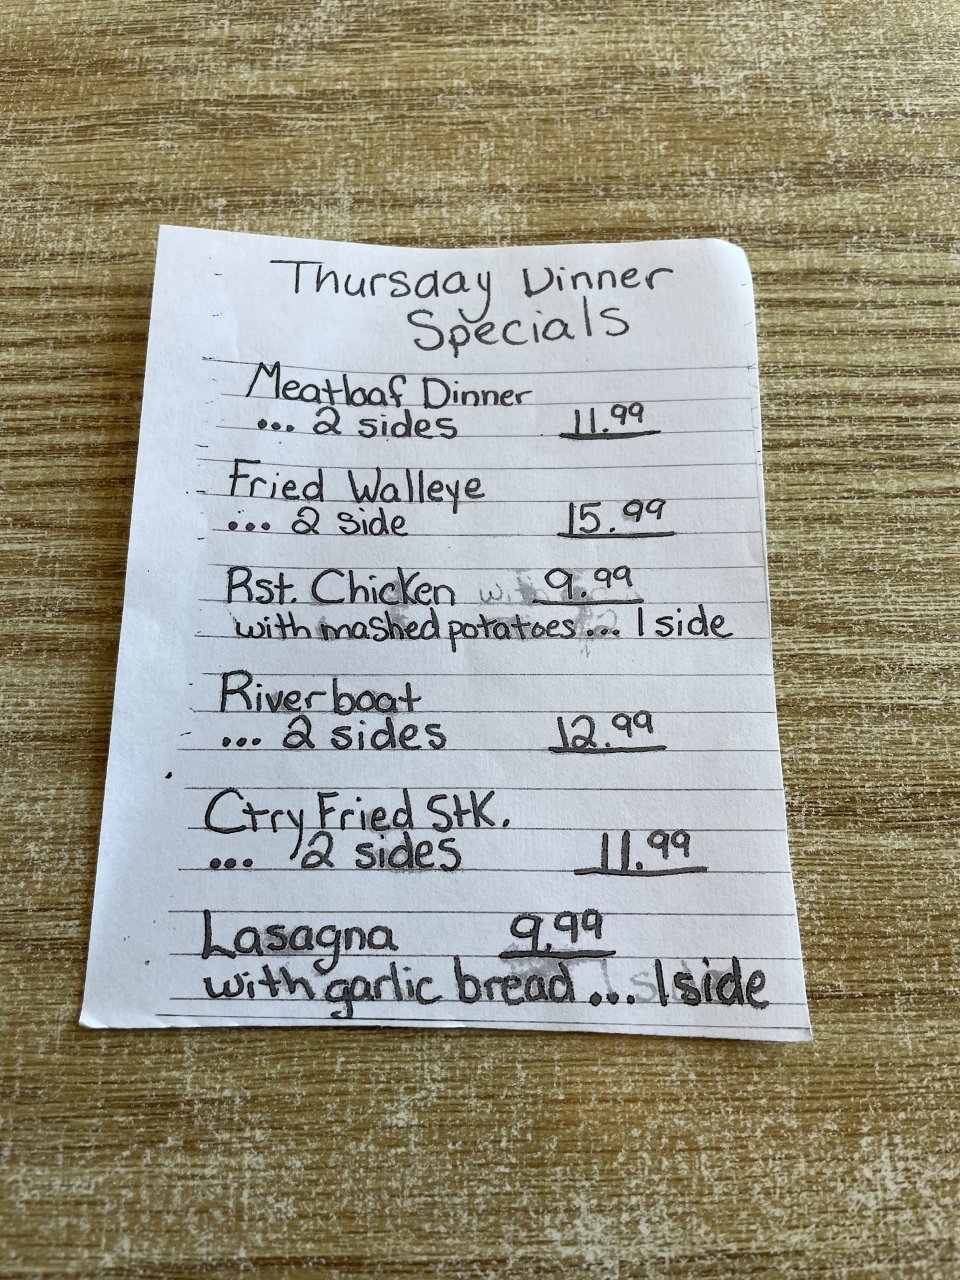 Thursday Dinner
Specials
Meatloaf Dinner
... 2 sides 11.99
Fried Walleye
... 2 side 15.99
Rst. Chicken 9.99
with mashed potatoes ... 1 side
Riverboat
... 2 sides 12.99
Ctry Fried Stk.
... 2 sides 11.99
Lasagna 9.99
with garlic bread ... 1 side